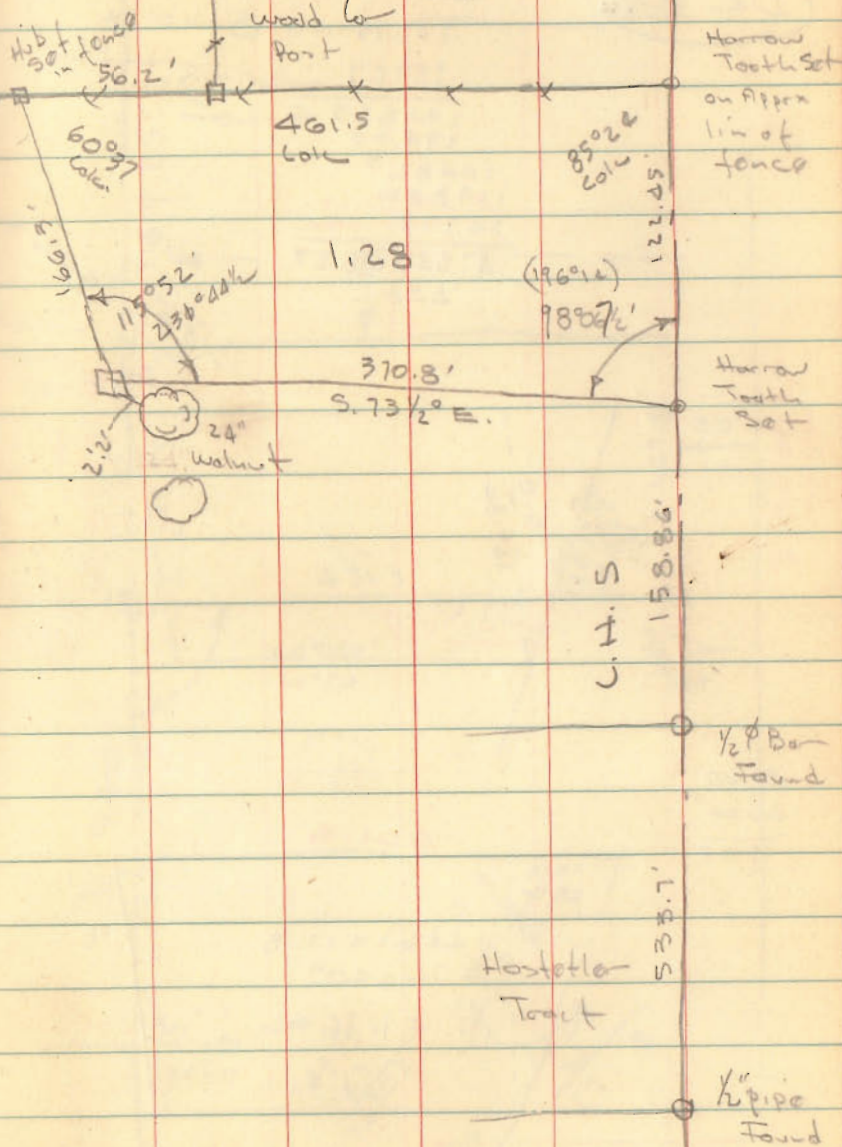 Hub
Set fence
in
56.2'
Wood Cor
Post
Harrow
Tooth Set
on Appex
lin of
fence
60°37
Calc
461.5
Calc
85°24
Calc
122.45'
1.28
(196°14)
98°07½'
115°52'
234°44½
370.8'
S. 73½° E.
Harrow
Tooth
Set
2.2'
24"
Walnut
C.H.S
158.86'
½ ⌀ Bar
Found
533.7'
Hostetler
Tract
½" pipe
Found